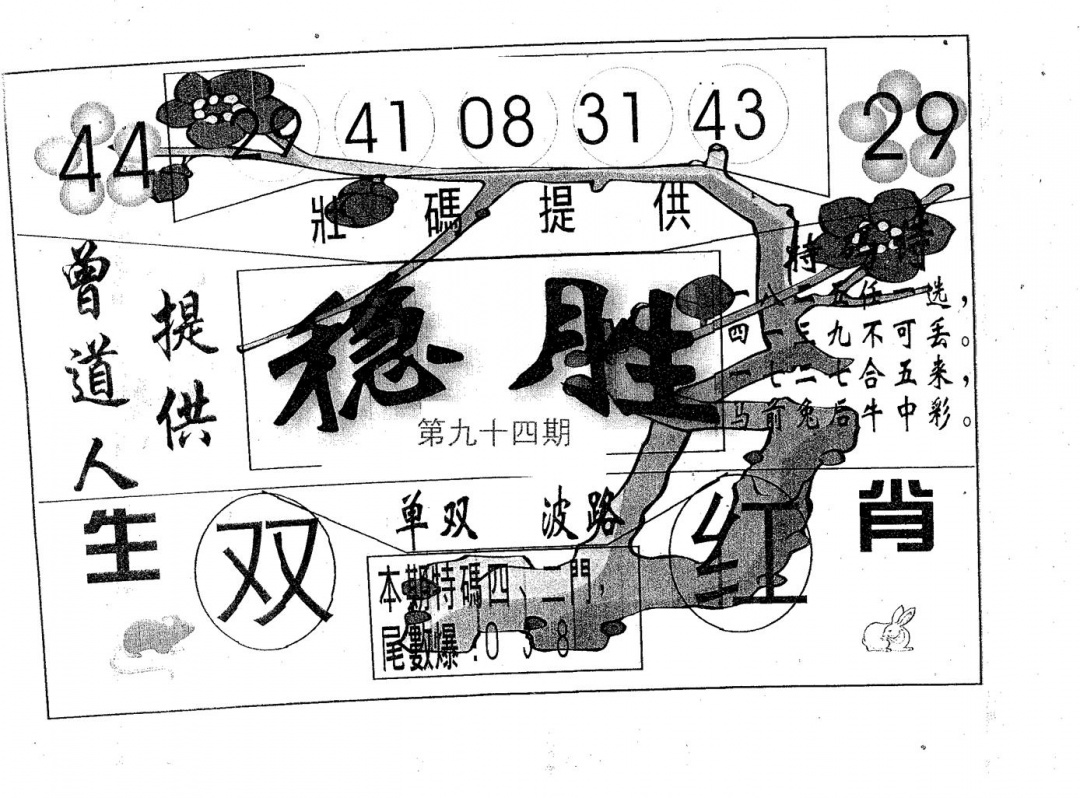 44 29 41 08 31 43 29
壯碼提供
曾道人
提供
稳胜
第九十四期
特码诗
一八二五任一选，
四一三九不可丢。
一七二七合五来，
马前兔后牛中彩。
生
双
单双 波路
红
肖
本期特碼四、二門，
尾數爆:0 3 8